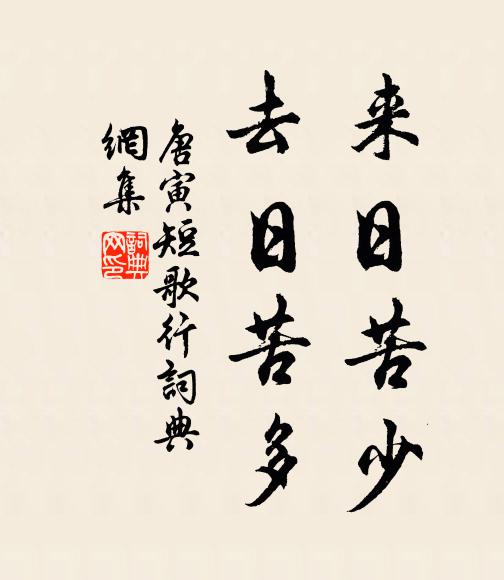 来日苦少
去日苦多
唐寅短歌行詞典
網集
詞典
网印